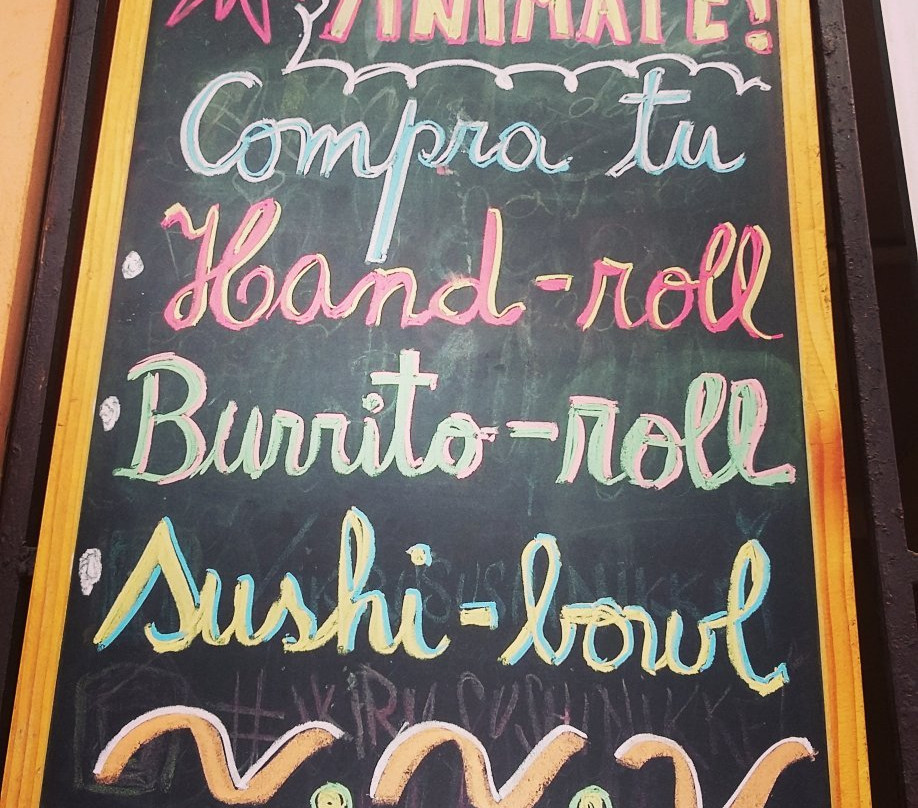 ANIMATE!
Compra tu
Hand-roll
Burrito-roll
Sushi-bowl